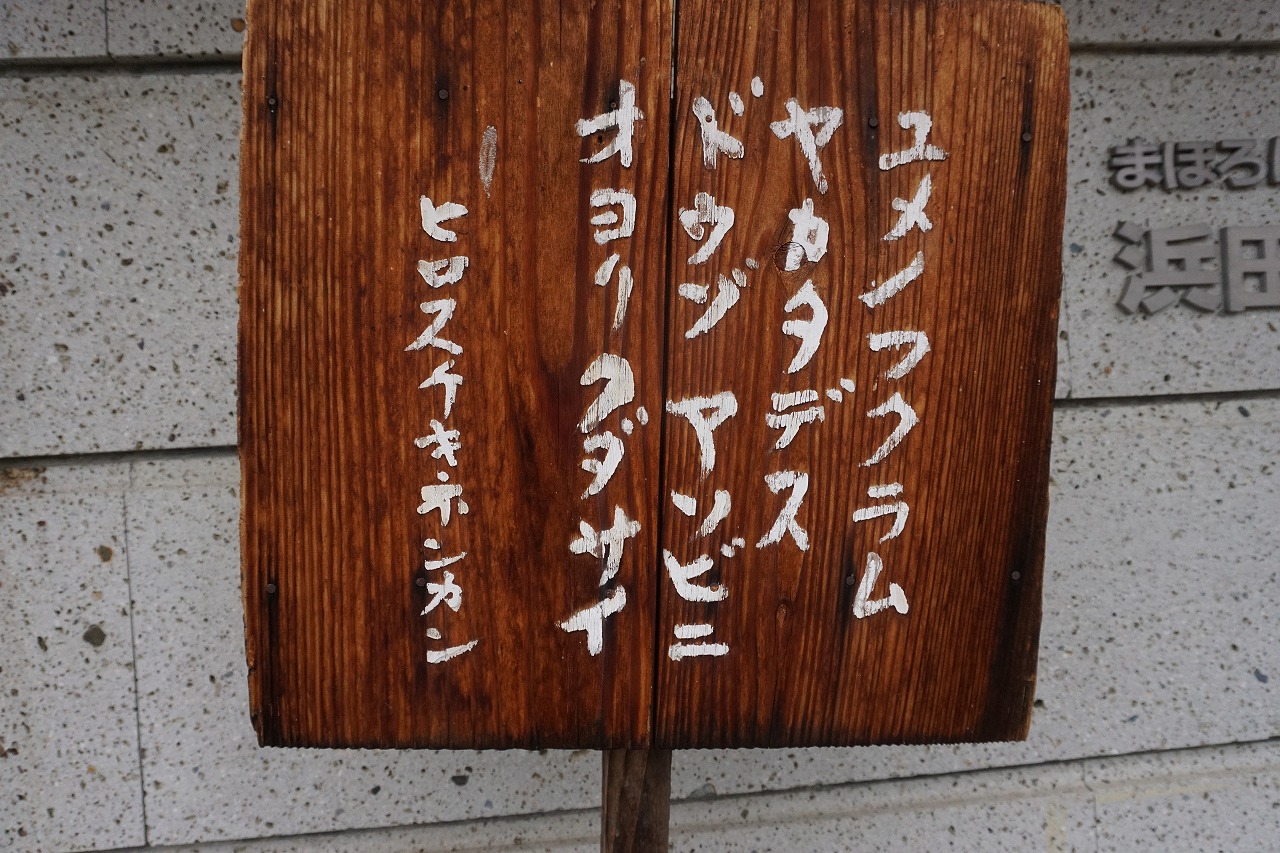 ユメノフクラム
ヤカタデス
ドウゾ アソビニ
オヨリ クダサイ
ヒロスケキネンカン
まほろ
浜田